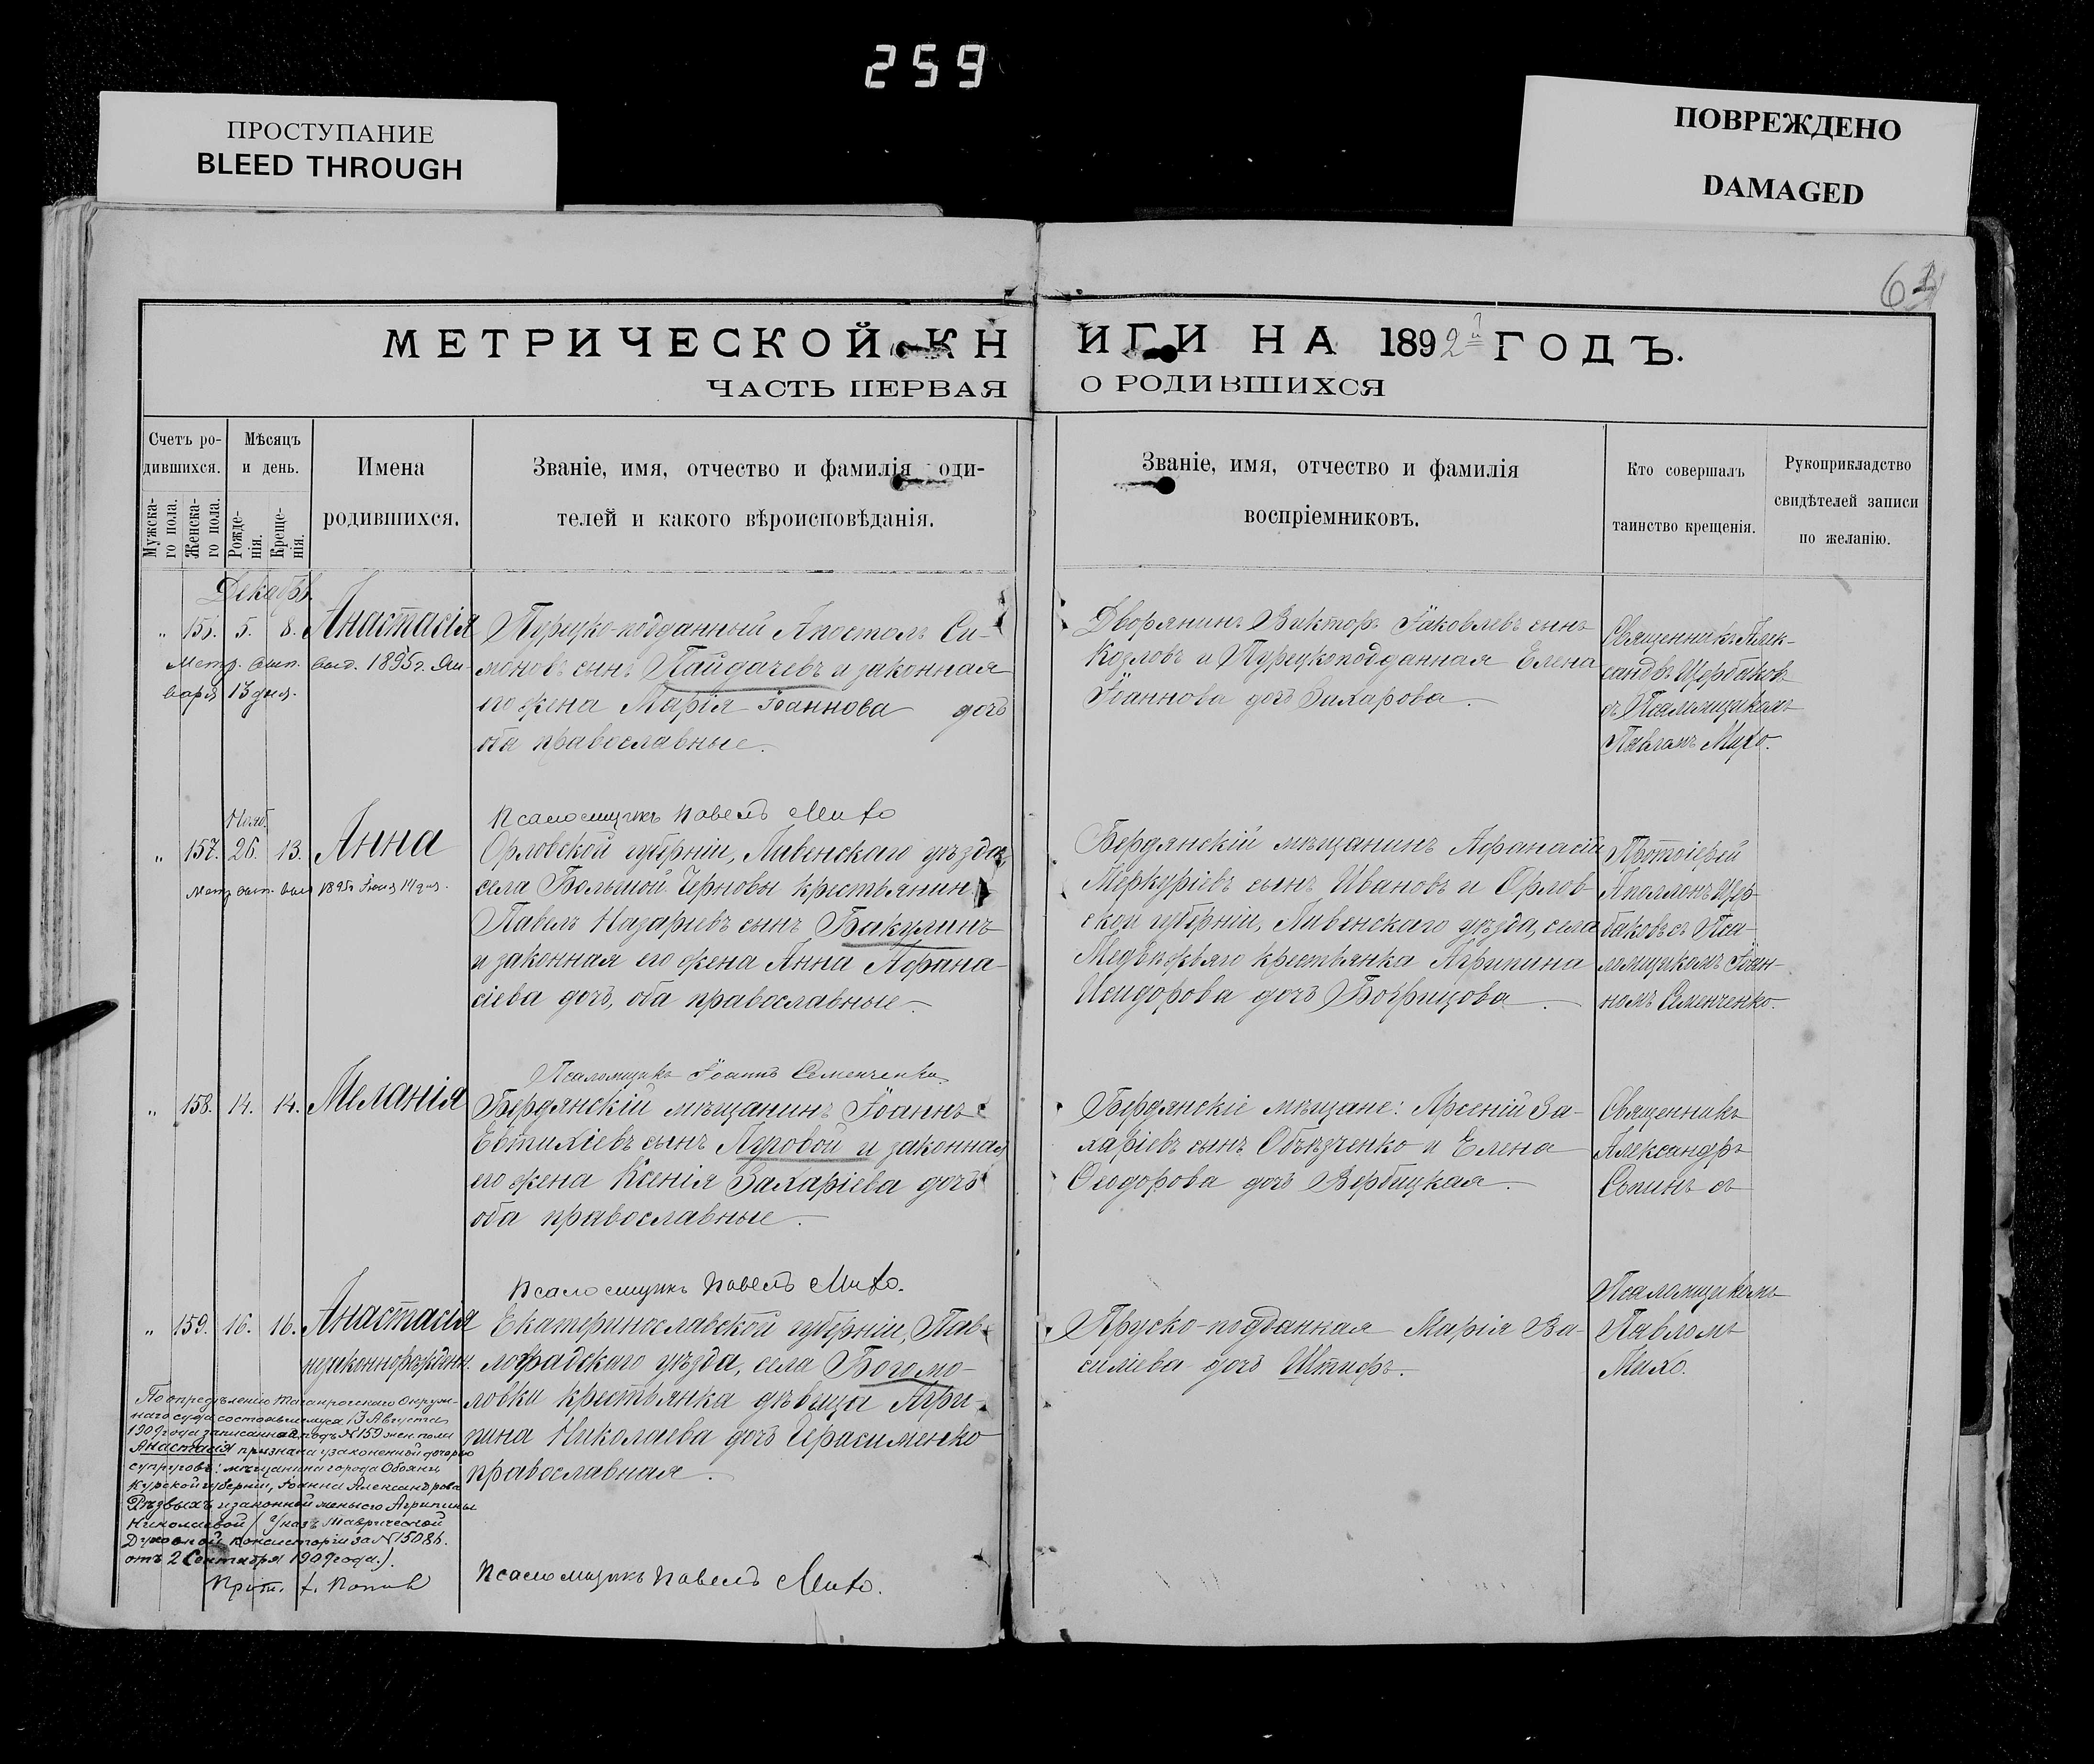 259
ПРОСТУПАНИЕ
BLEED THROUGH
ПОВРЕЖДЕНО
DAMAGED
МЕТРИЧЕСКОЙ КНИГИ НА 1892й ГОДЪ.
ЧАСТЬ ПЕРВАЯ О РОДИВШИХСЯ
Счетъ ро-
дившихся.
Мужска-
го пола.
Женска-
го пола.
Мѣсяцъ
и день.
Рожде-
нія.
Креще-
нія.
Имена
родившихся.
Званіе, имя, отчество и фамилія оди-
телей и какого вѣроисповѣданія.
Званіе, имя, отчество и фамилія
воспріемниковъ.
Кто совершалъ
таинство крещенія.
Рукоприкладство
свидѣтелей записи
по желанію.
Декабрь.
„ 156. 5. 8. Анастасія
Метр. вып. выд. 1895 г. Ян-
варя 13 дня.
Турецко-подданный Апостолъ Си-
моновъ сынъ Пайдачевъ и законная
его жена Марія Іоаннова дочь
оба православные.
Дворянинъ Викторъ Іаковлевъ сынъ
Козловъ и Турецкоподданная Елена
Іоаннова дочь Захарова.
Священникъ Алек-
сандръ Щербаковъ
съ Псаломщикомъ
Павломъ Михо.
Псаломщикъ Павелъ Михо
Нояб.
„ 157. 26. 13. Анна
Метр. вып. выд 1895 Іюня 14 дня.
Орловской губерніи, Ливенскаго уѣзда,
села Большой Черновы крестьянинъ
Павелъ Назаріевъ сынъ Бакулинъ
и законная его жена Анна Афана-
сіева дочь, оба православные.
Бердянскій мѣщанинъ Афанасій
Меркуріевъ сынъ Ивановъ и Орлов-
ской губерніи, Ливенскаго уѣзда, села
Медвѣжьяго крестьянка Агрипина
Исидорова дочь
Протоіерей
Аполлонъ Щер-
баковъ съ Пса-
ломщикомъ Іоан-
номъ Семенченко.
Псаломщикъ Іоаннъ Семенченко
„ 158. 14. 14. Меланія
Бердянскій мѣщанинъ Іоаннъ
Евтихіевъ сынъ и законная
его жена Ксенія Захаріева дочь
оба православные.
Бердянскіе мѣщане: Арсеній За-
харіевъ сынъ Объѣзченко и Елена
Ѳеодорова дочь Вербицкая.
Священникъ
Александръ
съ
Псаломщикомъ
Павломъ
Михо.
Псаломщикъ Павелъ Михо.
„ 159. 16. 16. Анастасія
незаконнорожден.
Екатеринославской губерніи, Пав-
лоградскаго уѣзда, села Богомо-
ловки крестьянка дѣвица Агри-
пина Николаева дочь Герасименко
православная.
Прусско-подданная Марія Ва-
силіева дочь Штифъ.
По опредѣленію Таганрогскаго Окруж-
наго суда, состоявшемуся 13 Августа
1909 года записанная подъ №159 жен. пола
Анастасія признана узаконенной дочерью
супруговъ: мѣщанина города Обояни
Курской губерніи, Іоанна Александрова
Рѣзвыхъ и законной жены его Агрипины
Николаевой (Указъ Таврической
Духовной Консисторіи за №15086.
отъ 2 Сентября 1909 года.).
Прот. Поповъ
Псаломщикъ Павелъ Михо.